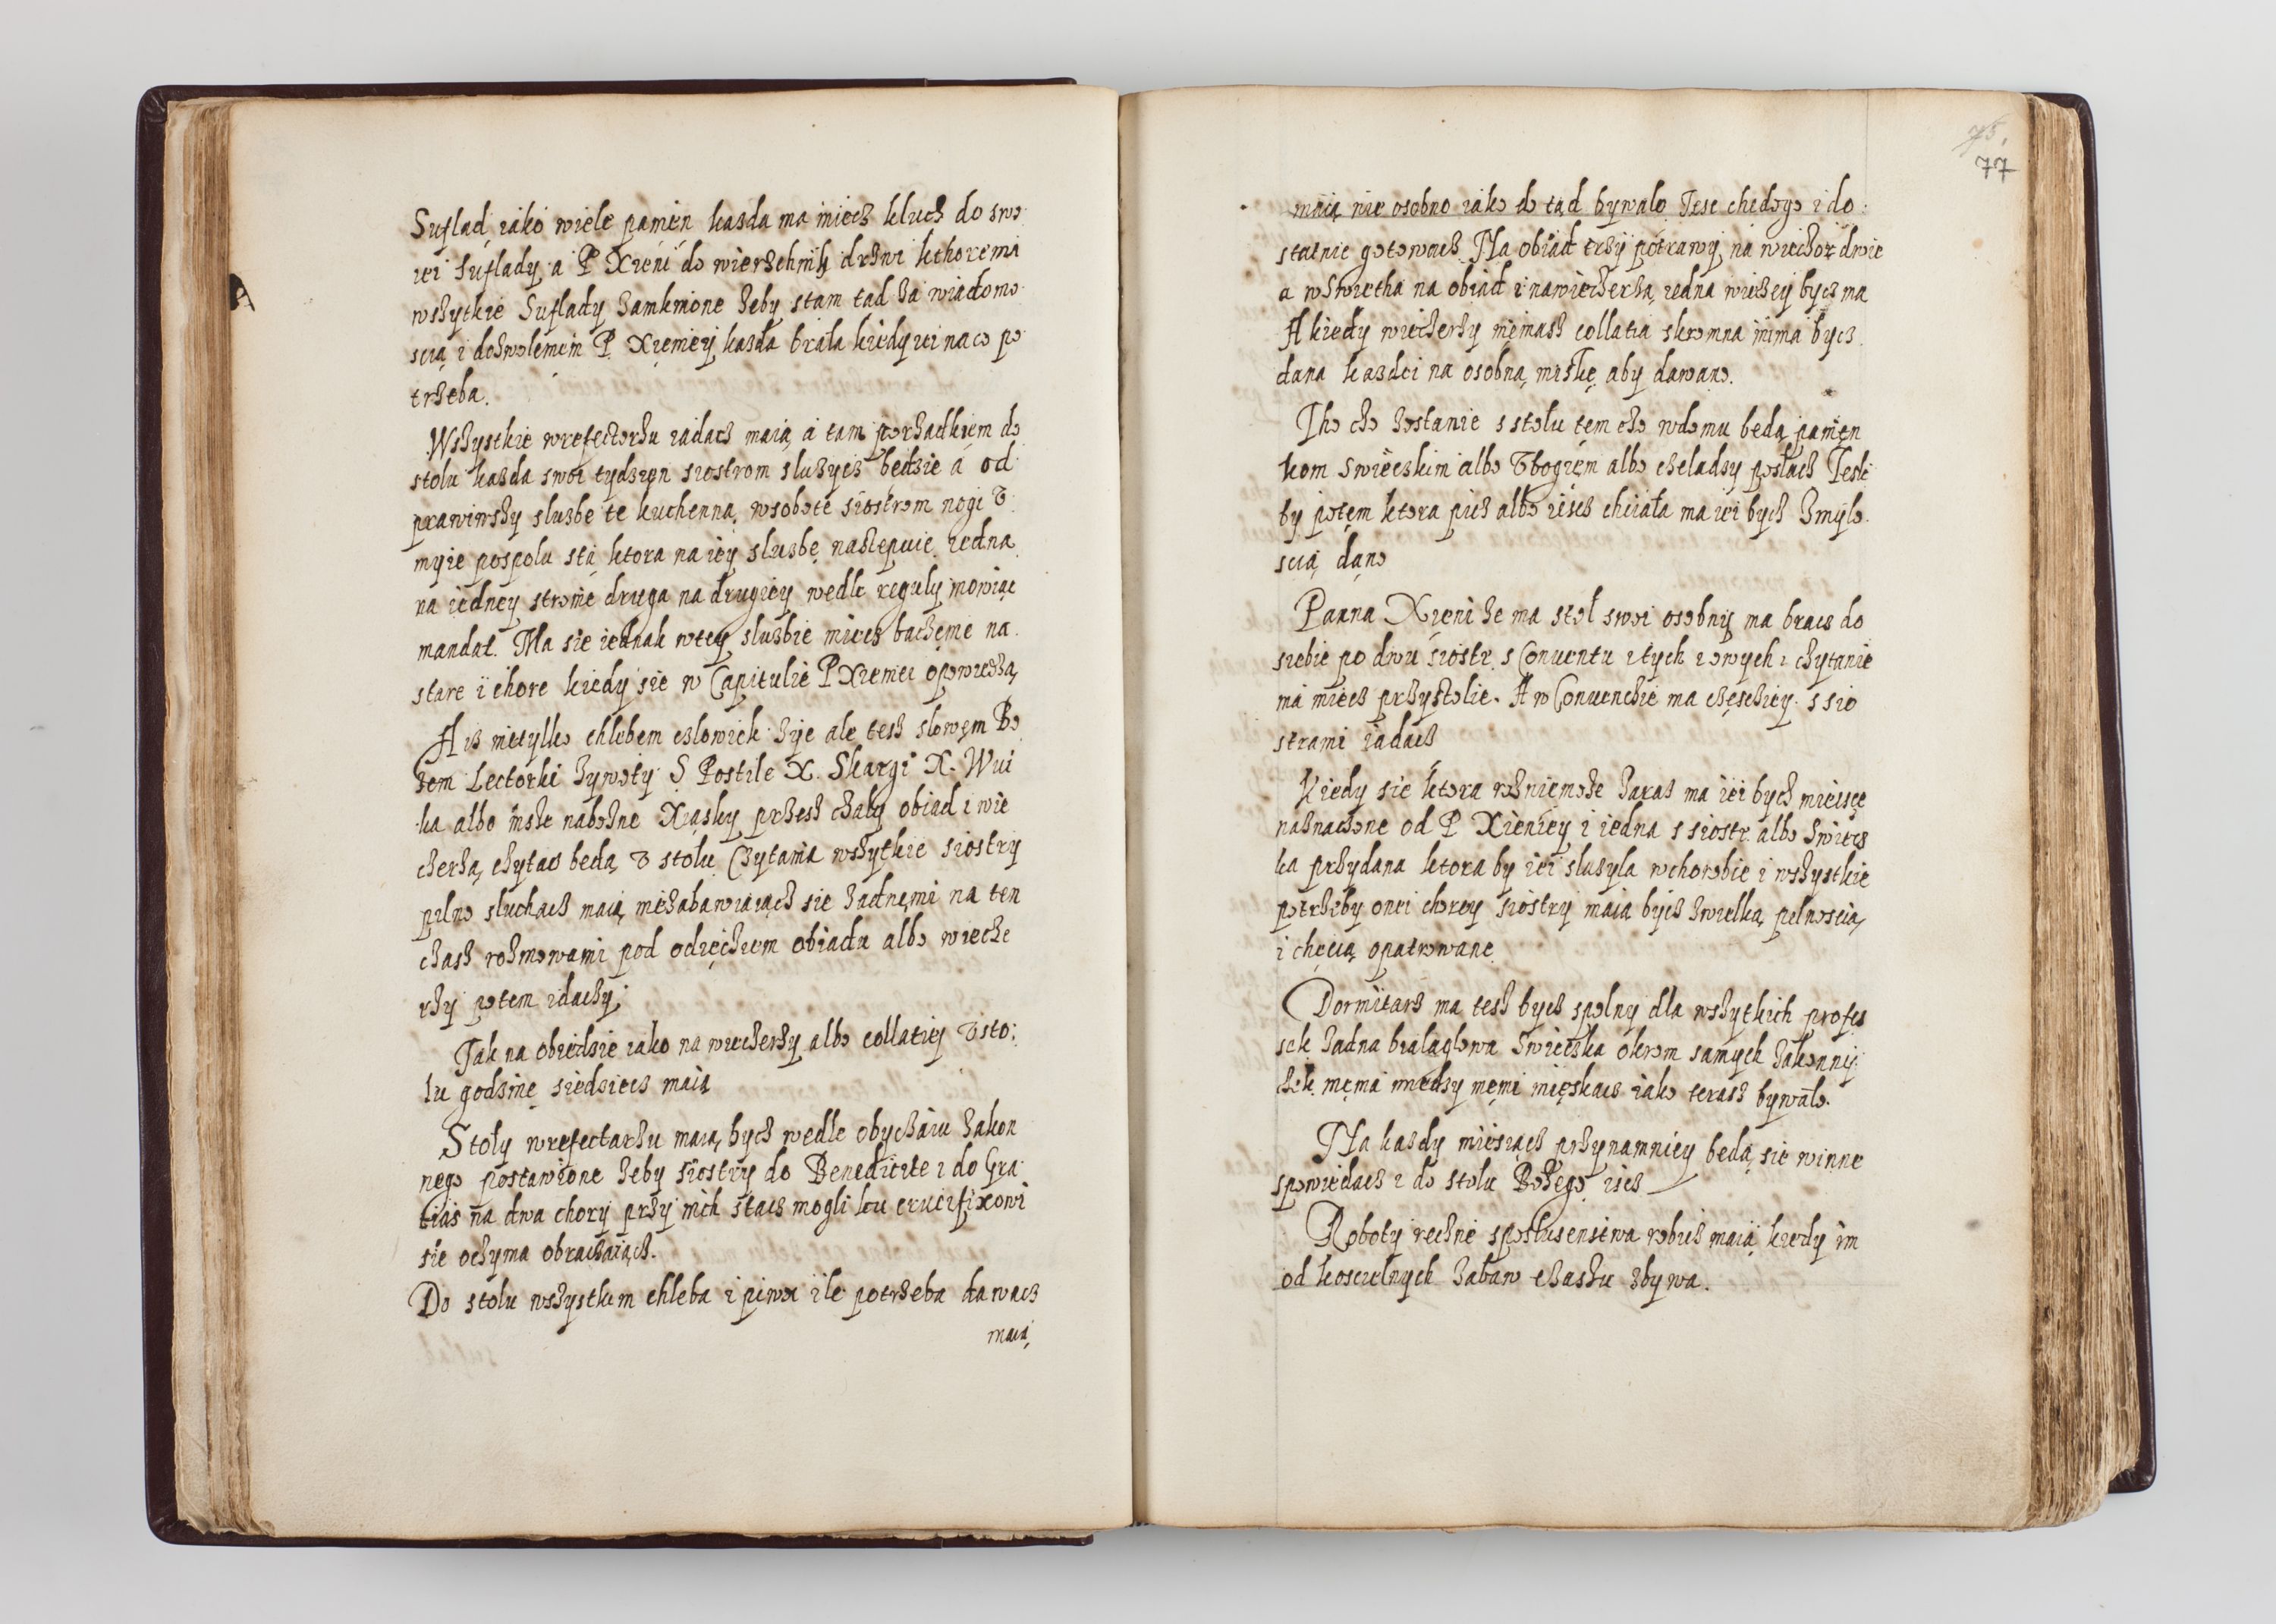 Suflad iako wiele panien kasda ma miecz klucz do swo
iei suflady a P Xieni do wierzchnik drzwi kthoremi
wszytkie Suflady zamknione zeby stam tad za wiadomo
scią i dozwolenim P Xieniey kazda brała kiedy iei na co po
trzeba.
Wszystkie wrefectorzu iadacz maią a tam porzadkiem do
stolu kasda swoi tydzien siostrom sluzycz będzie a od
prawiwszy sluzbe te kuchenną wsobote siostrom nogi v
myie pospolu stą ktora na iey sluzbę nastepuie iedna
na iedney stronie druga na drugiey wedle reguly mowiąc
mandat. Ma sie iednak wtey sluzbie miecz baczenie na
stare i chore kiedy sie w Capitulie P Xieniei opowiedzą
A iz nietylko chlebem czlowiek zije ale tesz slowem Bo
zem Lectorki zywoty S Postile X. Skargi X. Wui
ka albo insze nabozne Xiąszky przesz czały obiad i wie
czerzą czytac beda v stolu Czytania wszytkie siostry
pilno sluchacz maią niezabawiaiącz sie zadnemi na ten
czasz rozmowami pod odięcziem obiadu albo wiecze
rzy potem idaczy
Tak na obiedzie iako na wieczerzy albo collatiey v sto:
lu godzinę siedziecz maią
Stoly wrefectarzu maią bycz wedle obyczaiu zakon
nego postawione zeby siostry do Benedicite i do Gra
tias na dwa chory przy nich stacz mogli ku crucifixowi
sie oczyma obraczaiącz.
Do stolu wszystkim chleba i piwa ile potrzeba dawacz
maią
75.
77
maią nie osobno iako do tąd bywalo Jesc chedogo i do:
statnie gotowacz Na obiad trzy potrawy na wieczor dwie
a wswietha na obiad i nawieczerzą iedna wiecey bycz ma
A kiedy wieczerzy niemasz collatia skromna inima bycz
dana kazdei na osobną miskę aby dawano.
Tho czo zostanie s stolu tem czo wdomu bedą panien
kom swieczkim albo vbogiem albo czeladzy posłacz Jesli
by potem ktora picz albo iescz chciała ma iei bycz zmilo
scią dąno
Panna Xieni ze ma stol swoi osobny ma bracz do
siebie po dwu siostr s Conuentu i tych i owych i czytanie
ma miecz przystolie. A w Conuenczie ma czesciey s sio
strami iadacz
Kiedy sie ktora rozniemoze zaraz ma iei bycz mieisce
naznaczone od P Xieniey i iedna s siostr albo swiecz
ka przydana ktora by iei sluzyla wchorobie i wszystkie
potrzeby onei chorey siostry maia bycz zwielką pilnoscią
i chęcią opatrowane
Dormitarz ma tesz bycz spolny dla wszytkich profes
sek zadna bialaglowa swieczka okrom samych zakonny:
czek nęma miedzy nęmi mięskacz iako terasz bywało.
Na kazdy miesiącz przynamniey beda sie winne
spowiedacz i do stolu Bozego iscz
Roboty reczne sposłusenstwa robicz maią kiedy im
od koscielnych zabaw czaszu zbywa.